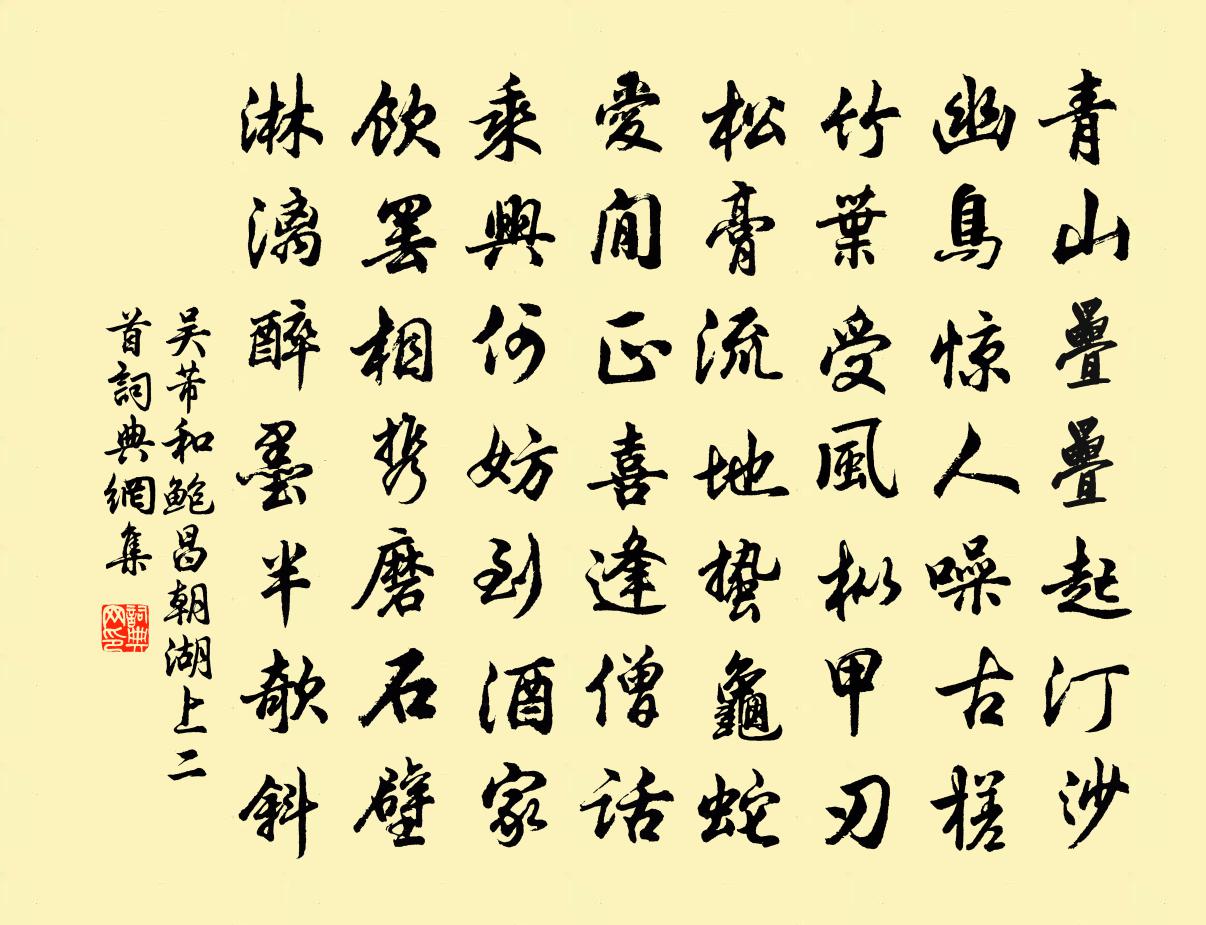 青山疊疊起汀沙
幽鳥惊人噪古槎
竹葉受風枞甲刃
松膏流地蟄龜蛇
愛閒正喜逢僧話
乘興何妨到酒家
飲罢相携磨石壁
淋漓醉墨半欹斜
吴芾和鲍昌朝湖上二
首詞典網集
詞典网印